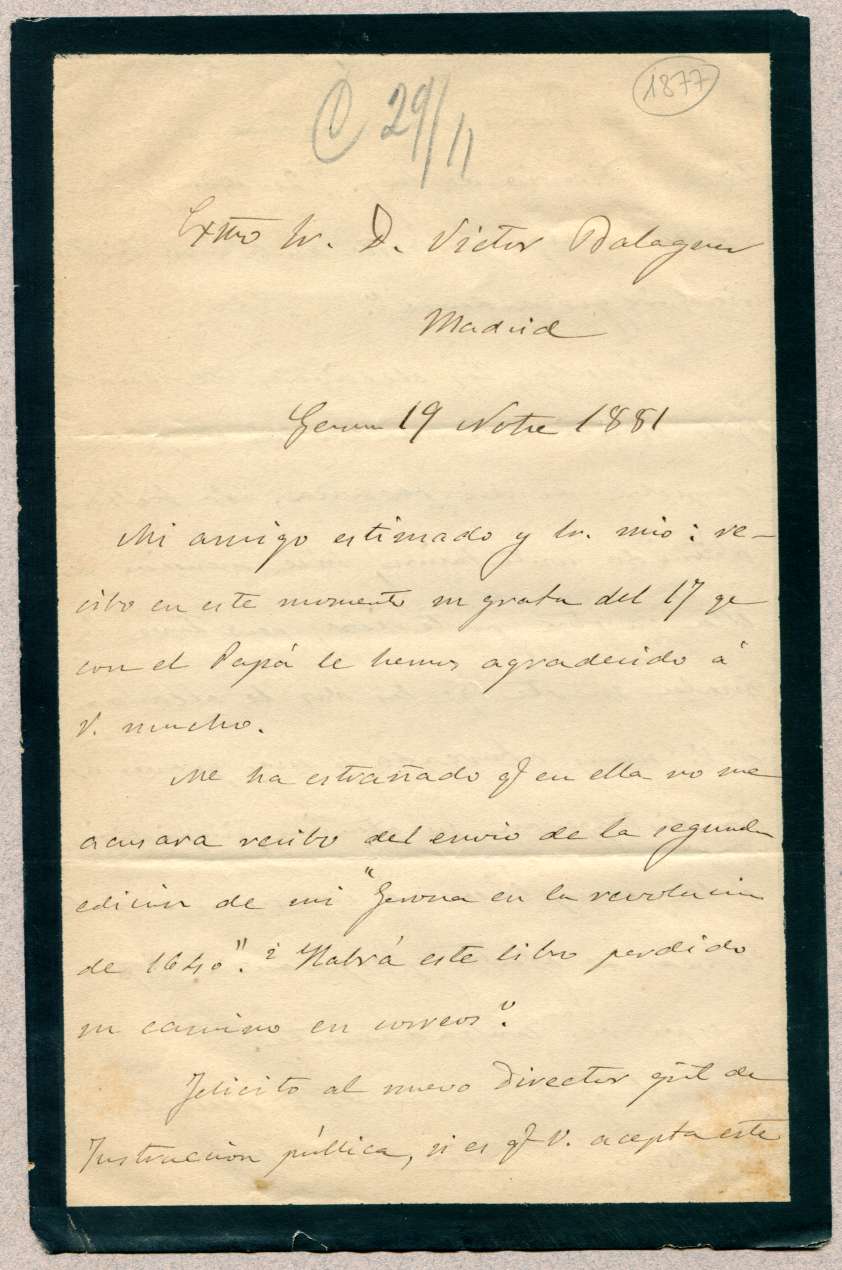 C 29/11
1877
Exmo Sr. D. Victor Balaguer
Madrid
Gerona 19 Nobre 1881
Mi amigo estimado y Sr. mio: re-
cibo en este momento su grata del 17 qe
con el Papá le hemos agradecido á
V. mucho.
Me ha estrañado q̃ en ella no me
acusara recibo del envio de la segunda
edición de mi "Gerona en la revolucion
de 1640". ¿Habrá este libro perdido
su camino en correos?
Felicito al nuevo Director gral de
Instruccion pública, si es q̃ V. acepta este